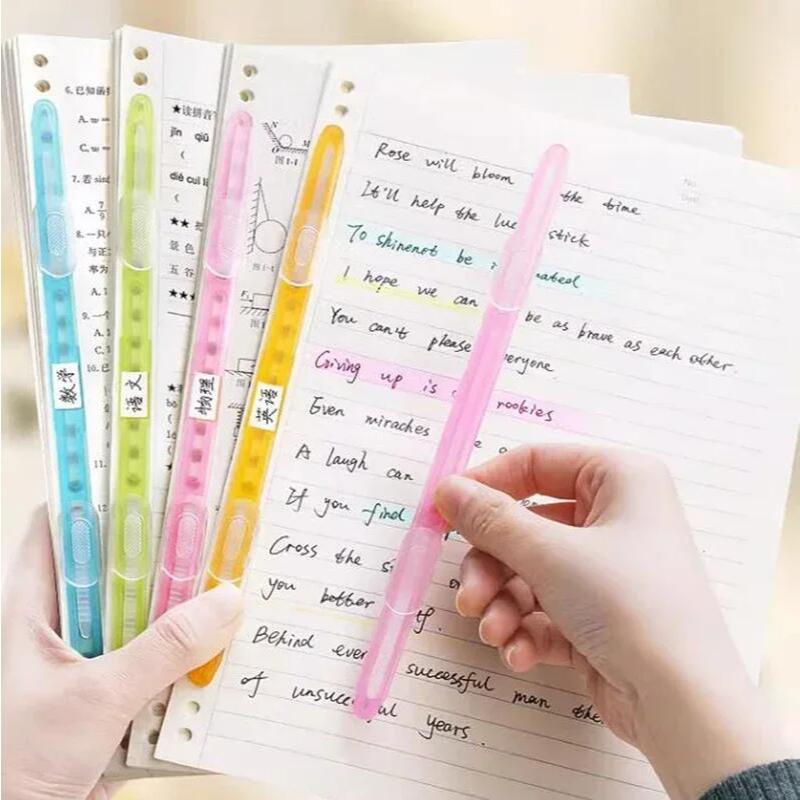 6. 已知函
A. w =
C, w =
7. 若 sin
A. 7/9
8. 一只
与正
率为
A. 1
9. 一个
A. 1
C. 1
10. 已
A.
11.
12.
数学
★读拼音
jīn qiū
(
dié cuì l
(
★★ 把
景 色
五 谷
★★★
语文
★
bō
ló
★★
N
M
O
图1-1
图1-1
F
物理
英语
No.
Date
Rose will bloom the time
It'll help the luc stick
To shinenot be ated.
I hope we can be as brave as each other.
You can't please eryone.
Griving up is rookies
Even miraches
A laugh can
If you find
Cross the
you better
Behind ever successful man the
of unsuccessful years.